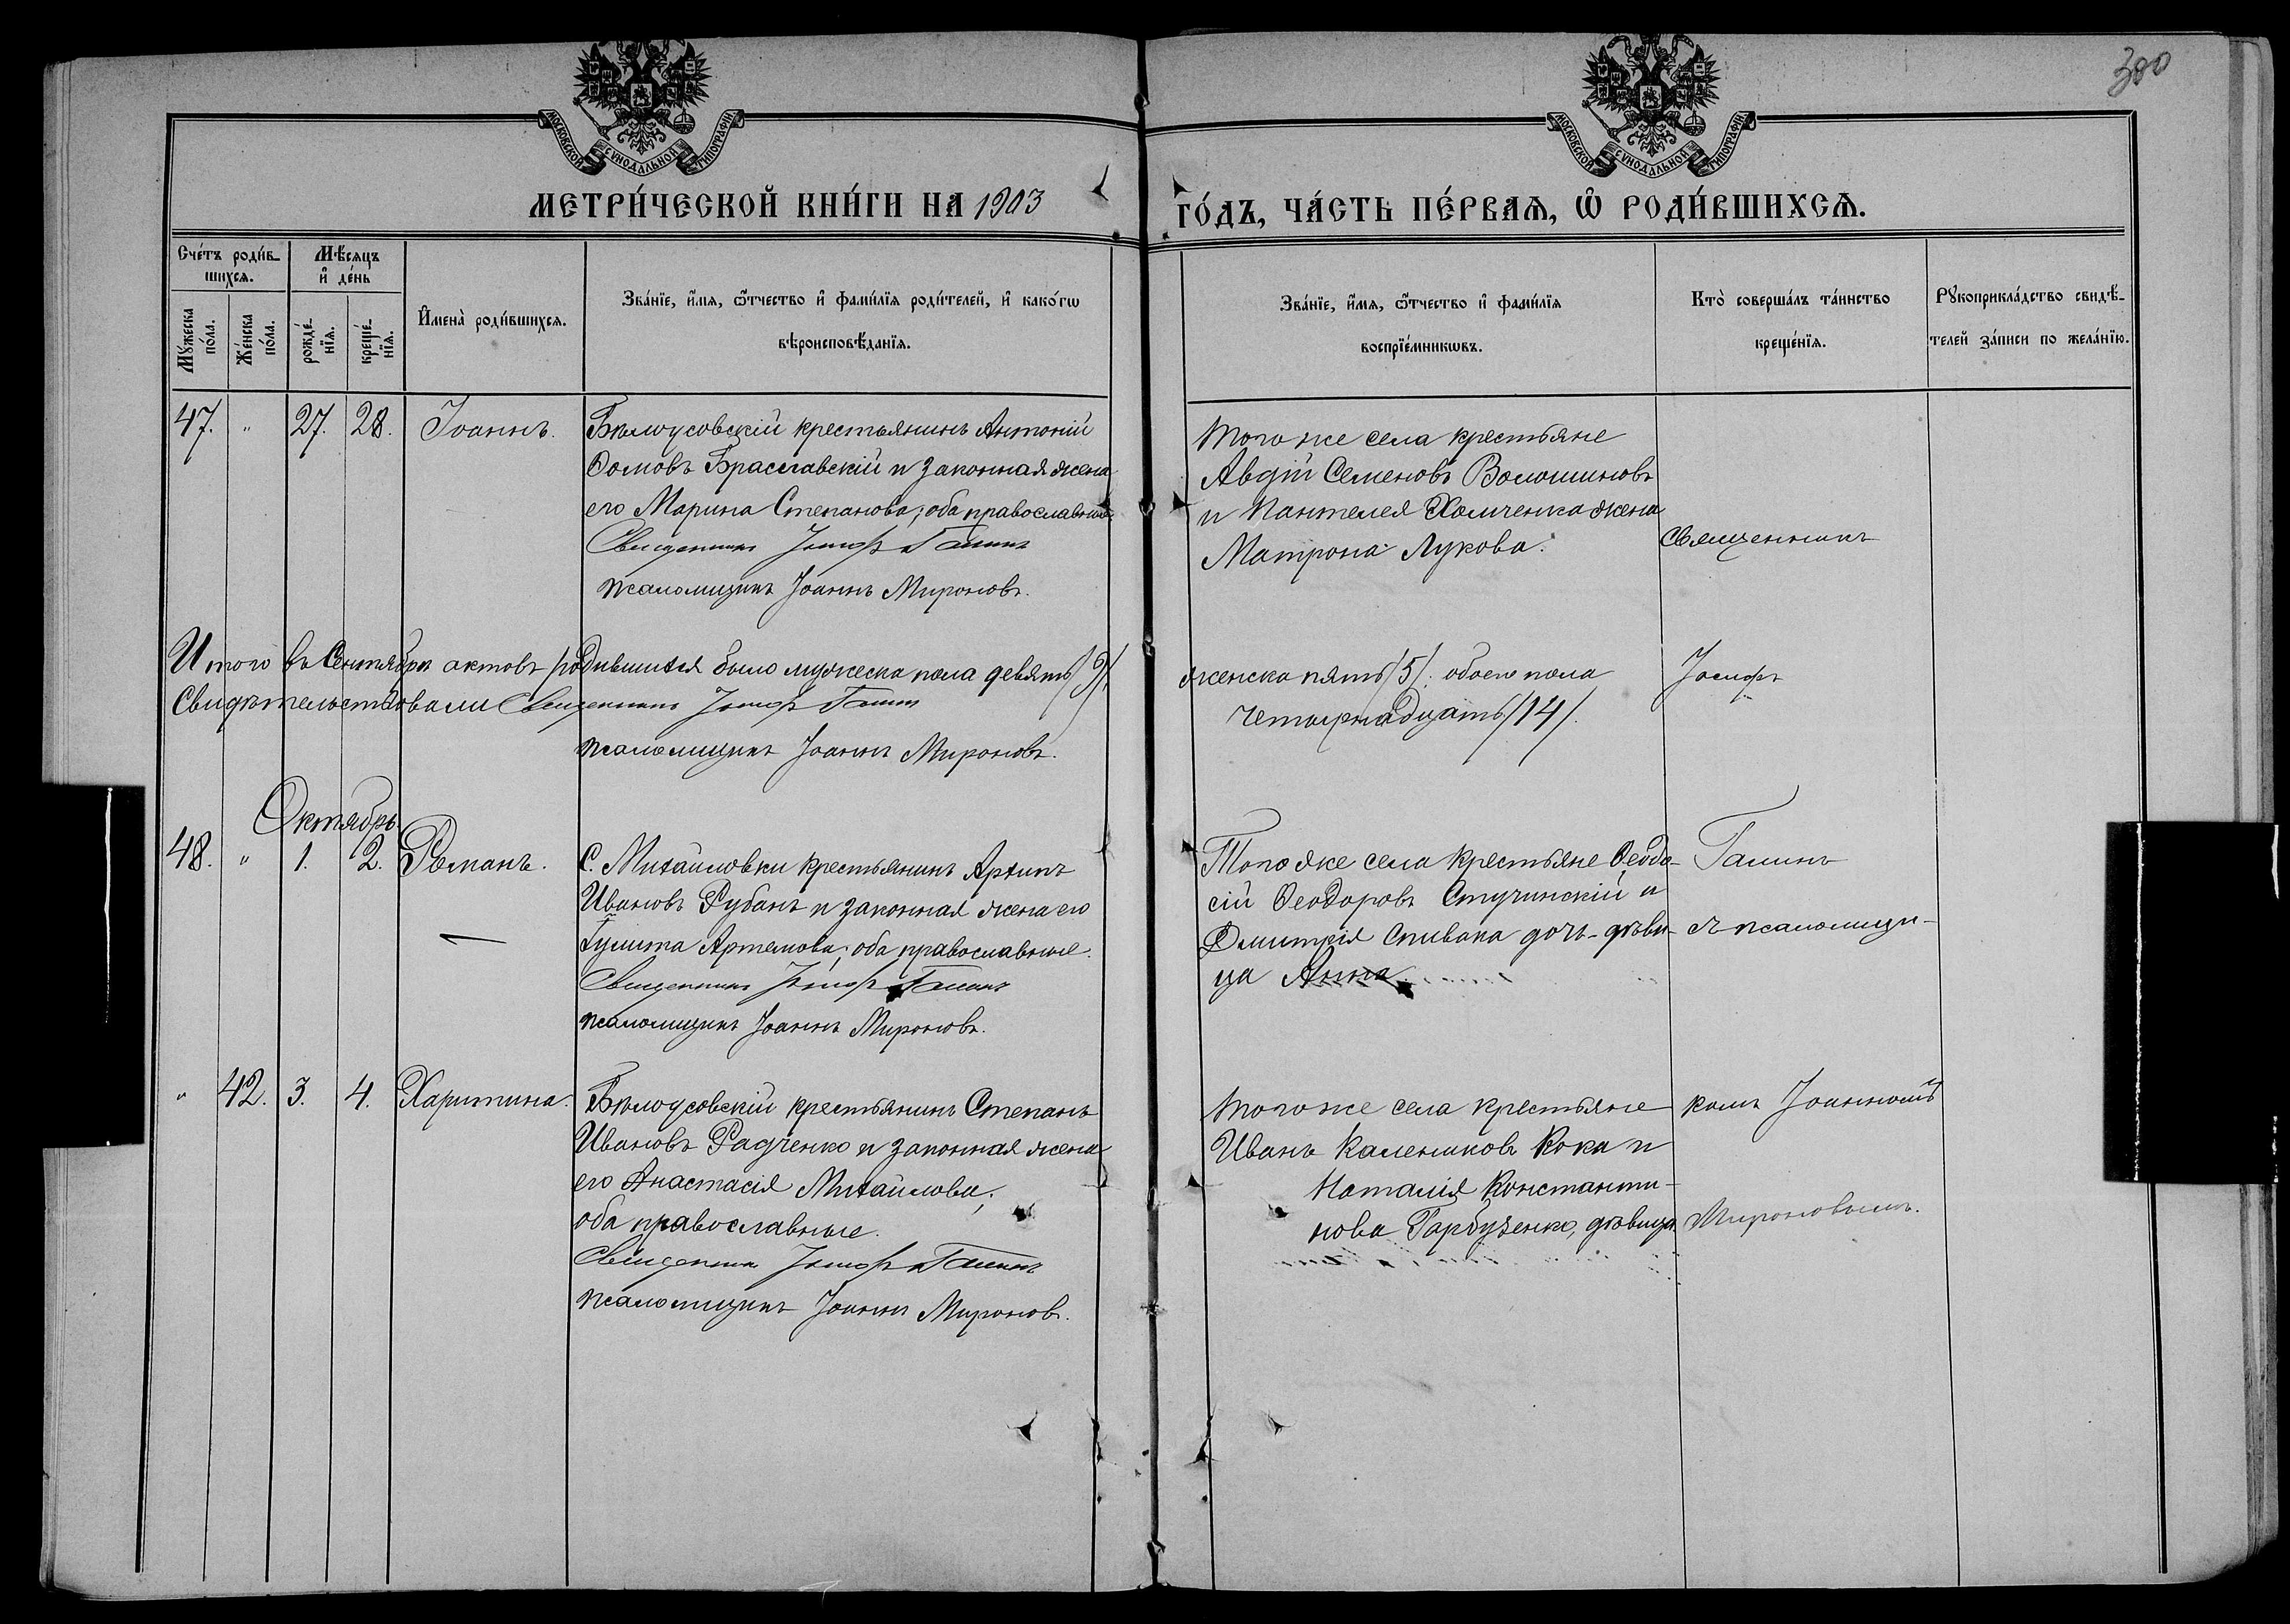 300
МОСКОВСКОЙ СУНОДАЛЬНОЙ ТИПОГРАФІИ
МОСКОВСКОЙ СУНОДАЛЬНОЙ ТИПОГРАФІИ
МЕТРИ́ЧЕСКОЙ КНИ́ГИ НА 1903
ГО́ДЪ, ЧА́СТЬ ПЕ́РВАѦ, Ѡ РОДИ́ВШИХСѦ.
Сче́тъ роди́в-
шихсѧ.
Мѣ́сяцъ
и҆ де́нь
Мꙋ́жеска
по́ла.
Же́нска
по́ла.
рожде́-
нїѧ.
креще́-
нїѧ.
И҆мена̀ роди́вшихсѧ.
Зва́нїе, и҆́мѧ, ѻ҆́тчество и҆ фами́лїѧ роди́телей, и҆ како́гѡ
вѣроисповѣ́данїѧ.
Зва́нїе, и҆́мѧ, ѻ҆́тчество и҆ фами́лїѧ
воспрїе́мникѡвъ.
Кто̀ соверша́лъ та́инство
креще́нїѧ.
Рꙋкоприкла́дство свидѣ́-
телей за́писи по жела́нїю.
47. " 27. 28. Іоаннъ.
Бѣлоусовскій крестьянинъ Антоній
Ѳомовъ Браславскій и законная жена
его Марина Степанова; оба православные.
Священникъ Іосифъ Галинъ
псаломщикъ Іоаннъ Мироновъ.
того же села крестьяне
Авдій Семеновъ Волошиновъ
и Пантелея Холченка жена
Матрона Лукова.
Священникъ
Итого въ Сентябрѣ актовъ родившихся было мужеска пола девять /9/.
женска пять /5/. обоего пола
четырнадцать /14/.
Іосифъ
Свидѣтельствовали Священникъ Іосифъ Галинъ
псаломщикъ Іоаннъ Мироновъ.
Октябрь
48. " 1. 2. Романъ.
С. Михайловки крестьянинъ Архипъ
Ивановъ Рубанъ и законная жена его
Гулита Артемова; оба православные.
Священникъ Іосифъ Галинъ
псаломщикъ Іоаннъ Мироновъ.
Того же села крестьяне Ѳеодо-
сій Ѳеодоровъ Стучинскій и
Дмитрія Спивака дочь-дѣви-
ца Анна
Галинъ
съ псаломщи-
" 42. 3. 4. Харитина.
Бѣлоусовскій крестьянинъ Степанъ
Ивановъ Радченко и законная жена
его Анастасія Михайлова;
оба православные.
Священникъ Іосифъ Галинъ
псаломщикъ Іоаннъ Мироновъ.
того же села крестьяне
Иванъ Калениковъ Кока и
Наталія Константи-
нова Гарбузенко, дѣвица
комъ Іоанномъ
Мироновымъ.